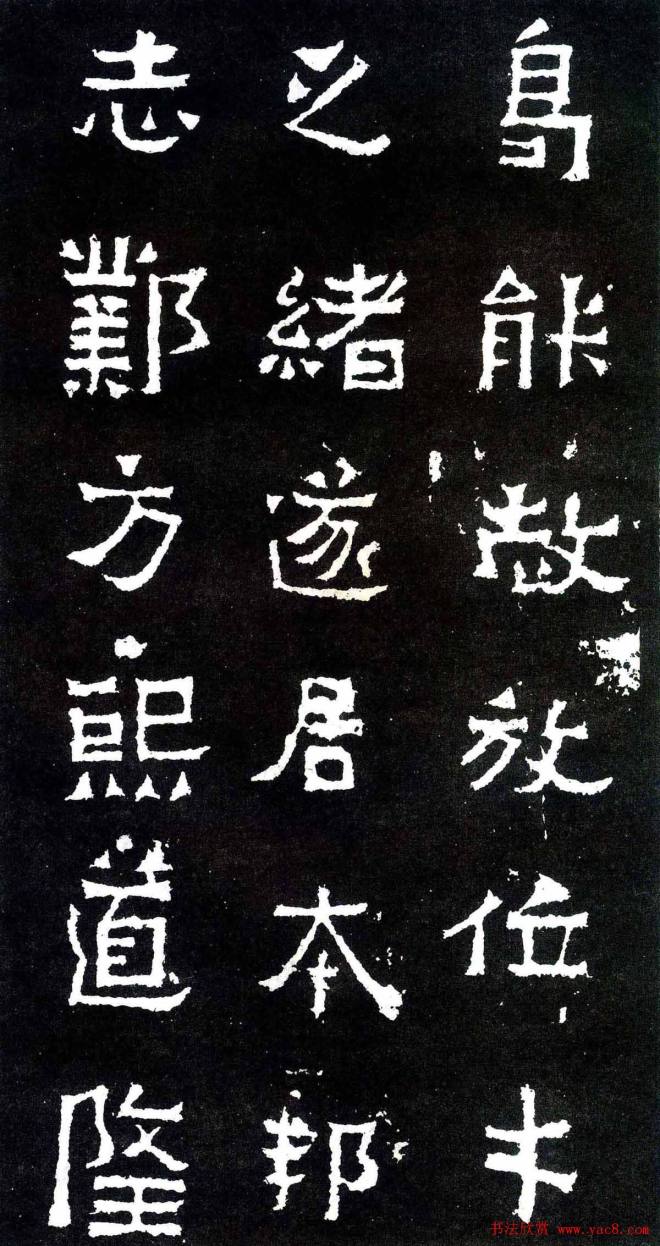 曷能赦放位才
之緒遂居本邦
志鄴方熙道隆
书法欣赏 www.yac8.com